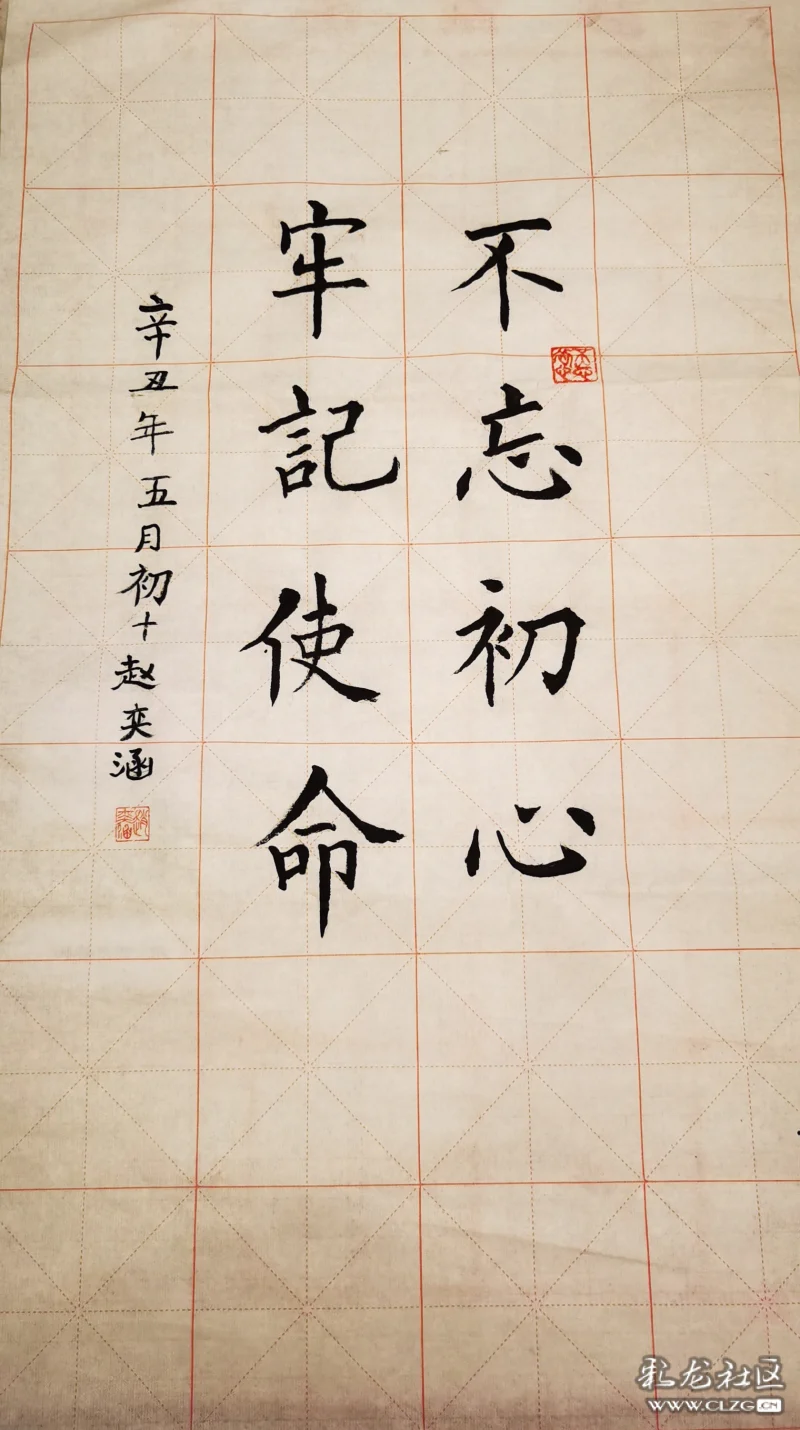 不忘初心
牢記使命
辛丑年五月初十赵奕涵
彩龙社区
WWW.CLZG.CN